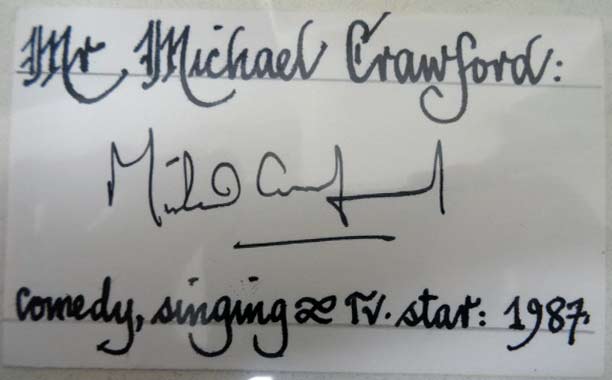 Mr Michael Crawford:
Michael Crawford
comedy, singing & TV. star: 1987.